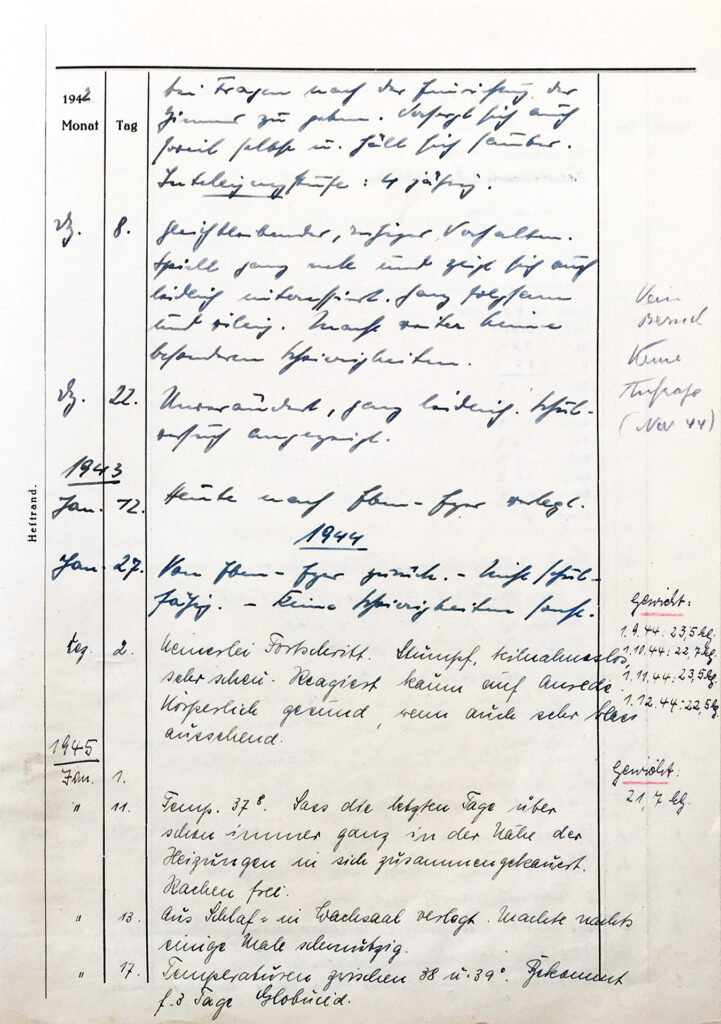 1942
Monat Tag
bei Fragen nach der Einrichtung der
Zimmer zu geben. Versorgt sich auch
soweit selbst u. hält sich sauber.
Intelligenzstufe: 4 jährig.
Dz. 8. Gleichbleibender, ruhiger Verhalten.
Spielt ganz nett und zeigt sich auch
leidlich interessiert. Ganz folgsam
und willig. Macht weiter keine
besonderen Schwierigkeiten.
Kein
Besuch
Keine
Anfrage
(Nov 44)
Dz. 22. Unverändert, ganz leidlich. Schul-
versuch angezeigt.
1943
Jan. 12. Heute nach verlegt.
1944
Jan. 27. Von zurück. - Nicht schul-
fähig. - Keine Schwierigkeiten sonst.
Gewicht:
1.9.44: 23,5 kg.
1.10.44: 22,7 kg.
1.11.44: 23,5 kg.
1.12.44: 22,5 kg.
Dez. 2. Keinerlei Fortschritt. Stumpf, teilnahmslos,
sehr scheu. Reagiert kaum auf Anrede.
Körperlich gesund, wenn auch sehr blass
aussehend.
1945
Jan. 1.
Gewicht:
21,7 kg.
" 11. Temp. 37⁸. Sass die letzten Tage über
schon immer ganz in der Nähe der
Heizungen in sich zusammengekauert.
Rachen frei.
" 13. Aus Schlaf- in Wachsaal verlegt. Machte nachts
einige Male schmutzig.
" 17. Temperaturen zwischen 38 u. 39°. Bekommt
f. 3 Tage Globucid.
Heftrand.